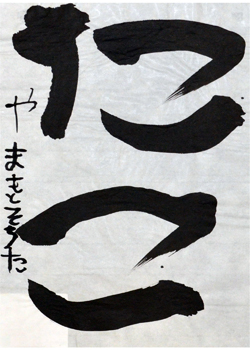 たこ
やまもとそうた